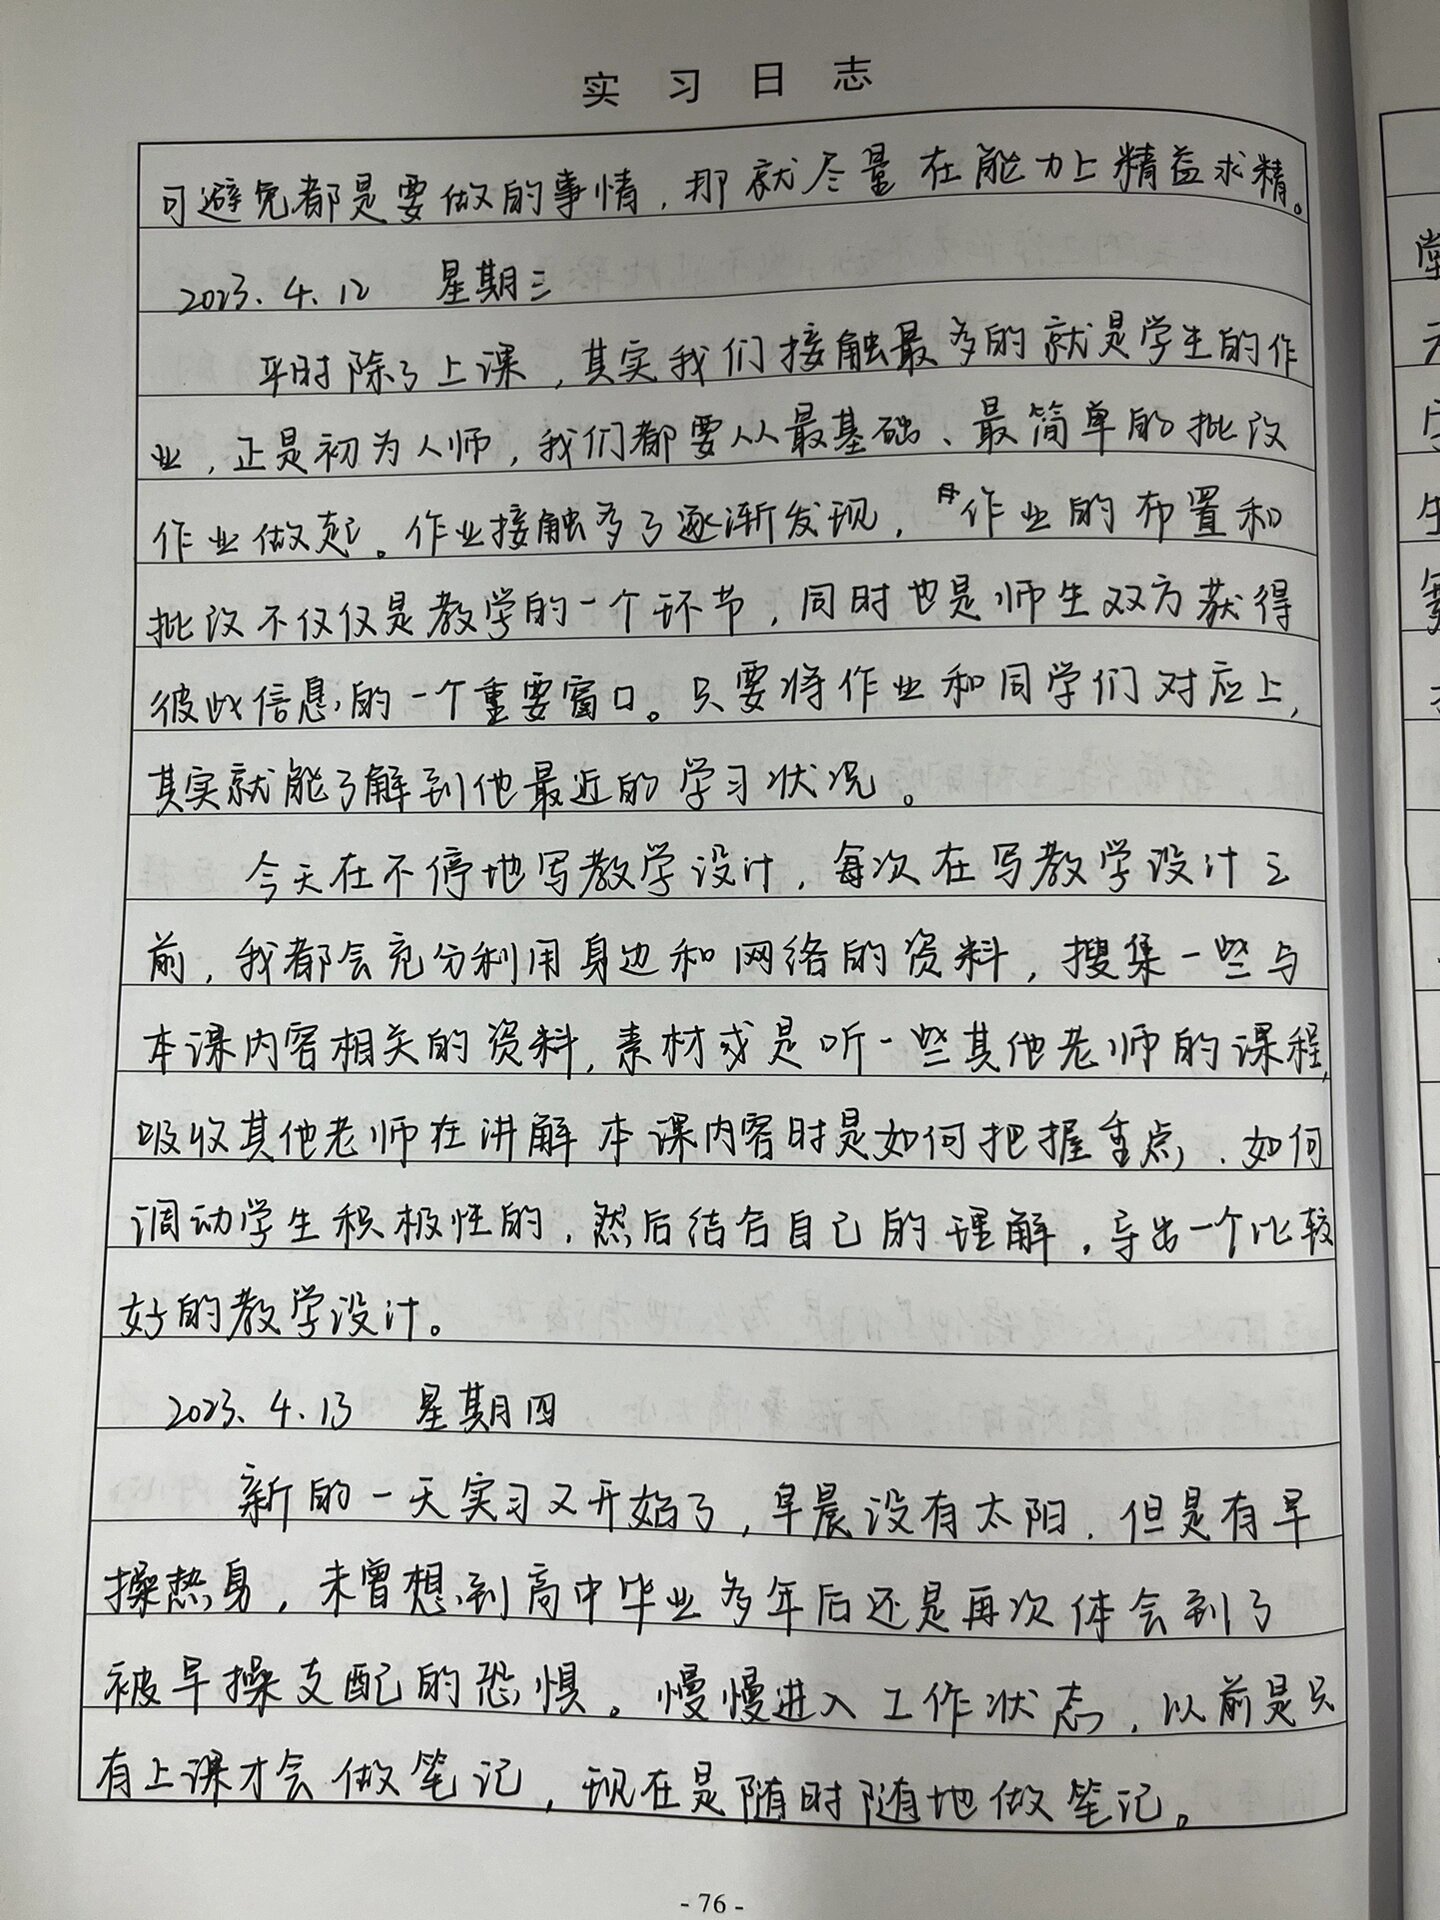 实习日志
可避免都是要做的事情，那就尽量在能力上精益求精。
2023.4.12 星期三
平时除了上课，其实我们接触最多的就是学生的作
业，正是初为人师，我们都要从最基础、最简单的批改
作业做起。作业接触多了逐渐发现，作业的布置和
批改不仅仅是教学的一个环节，同时也是师生双方获得
彼此信息的一个重要窗口。只要将作业和同学们对应上，
其实就能了解到他最近的学习状况。
今天在不停地写教学设计，每次在写教学设计之
前，我都会充分利用身边和网络的资料，搜集一些与
本课内容相关的资料，素材或是听一些其他老师的课程，
吸收其他老师在讲解本课内容时是如何把握重点、如何
调动学生积极性的，然后结合自己的理解，导出一个比较
好的教学设计。
2023.4.13 星期四
新的一天实习又开始了，早晨没有太阳，但是有早
操热身，未曾想到高中毕业多年后还是再次体会到了
被早操支配的恐惧。慢慢进入工作状态，以前是只
有上课才会做笔记，现在是随时随地做笔记。
- 76 -